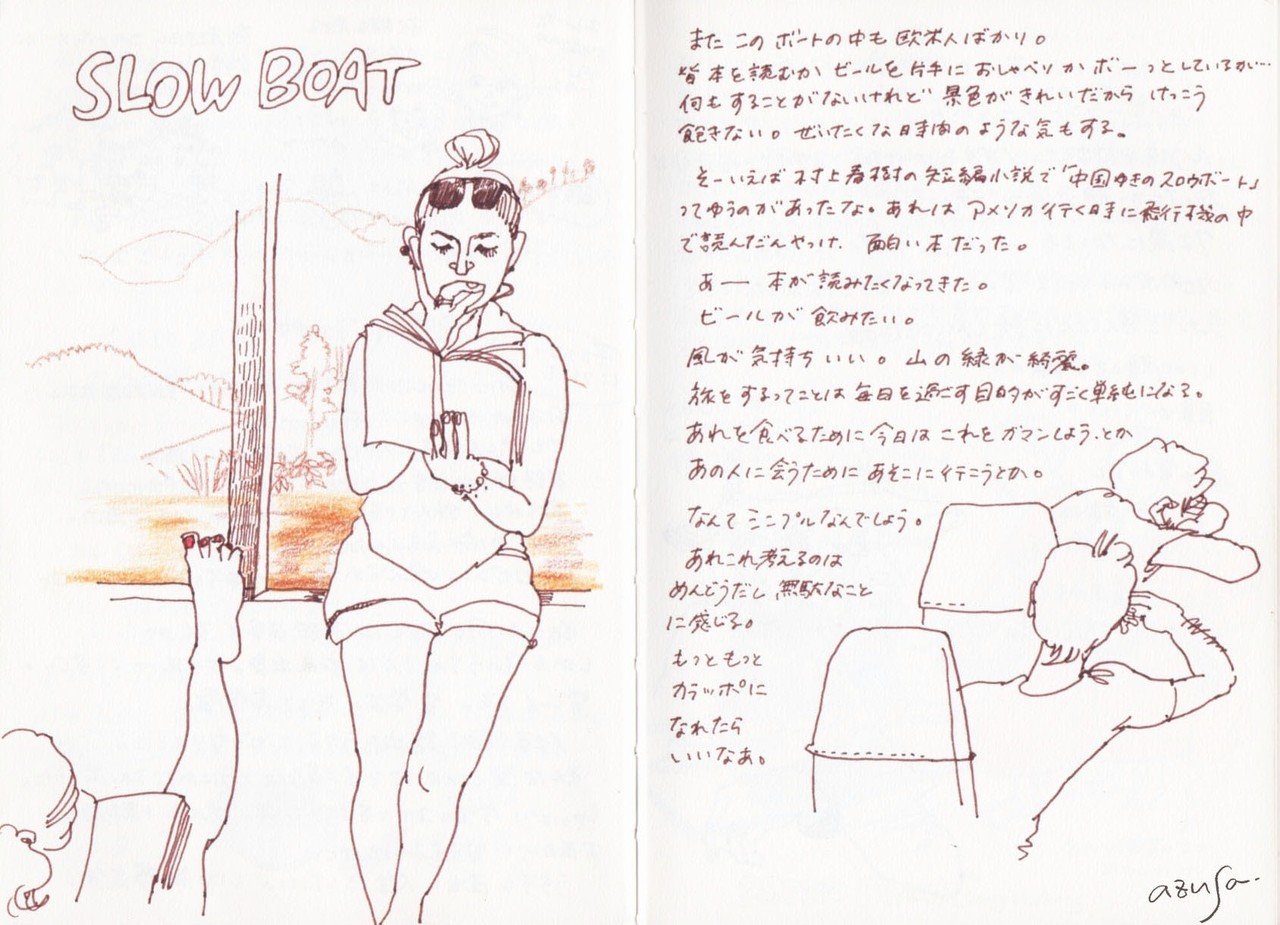 SLOW BOAT
また このボートの中も欧米人ばかり。
皆本を読むか ビールを片手に おしゃべりか ボーっとしているか…
何もすることがないけれど 景色がきれいだから けっこう
飽きない。ぜいたくな時間のような気もする。
そーいえば 村上春樹の短編小説で「中国ゆきのスロウボート」
ってゆうのがあったな。あれは アメリカ行く時に飛行機の中
で読んだんやっけ. 面白い本だった。
あー 本が読みたくなってきた。
ビールが 飲みたい。
風が気持ちいい。山の緑が綺麗。
旅をするってことは毎日を過ごす目的がすごく単純になる。
あれを食べるために今日は これをガマンしよう、とか
あの人に会うために あそこに行こうとか。
なんて シンプルなんでしょう。
あれこれ考えるのは
めんどうだし 無駄なこと
に感じる。
もっともっと
カラッポに
なれたら
いいなあ。
azusa.